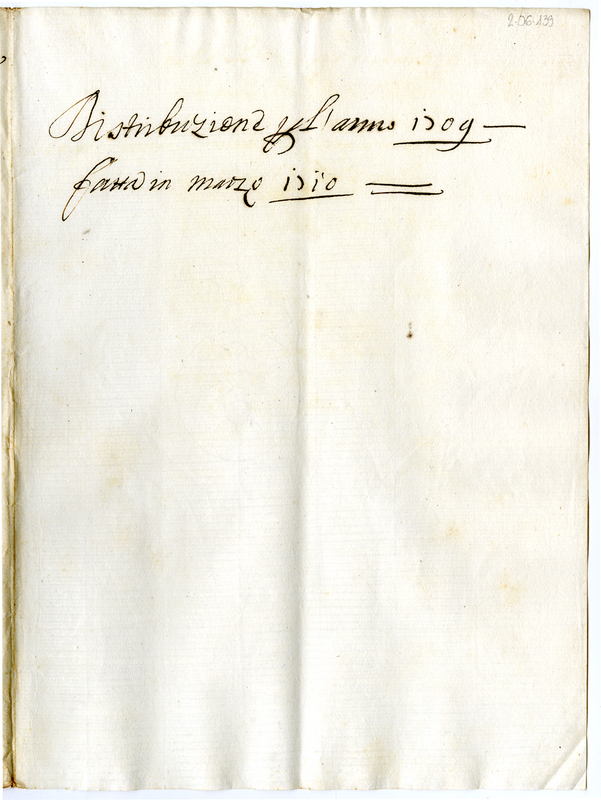 2-06-139
Distribuzione p l'anno 1709 —
fatta in marzo 1710 =